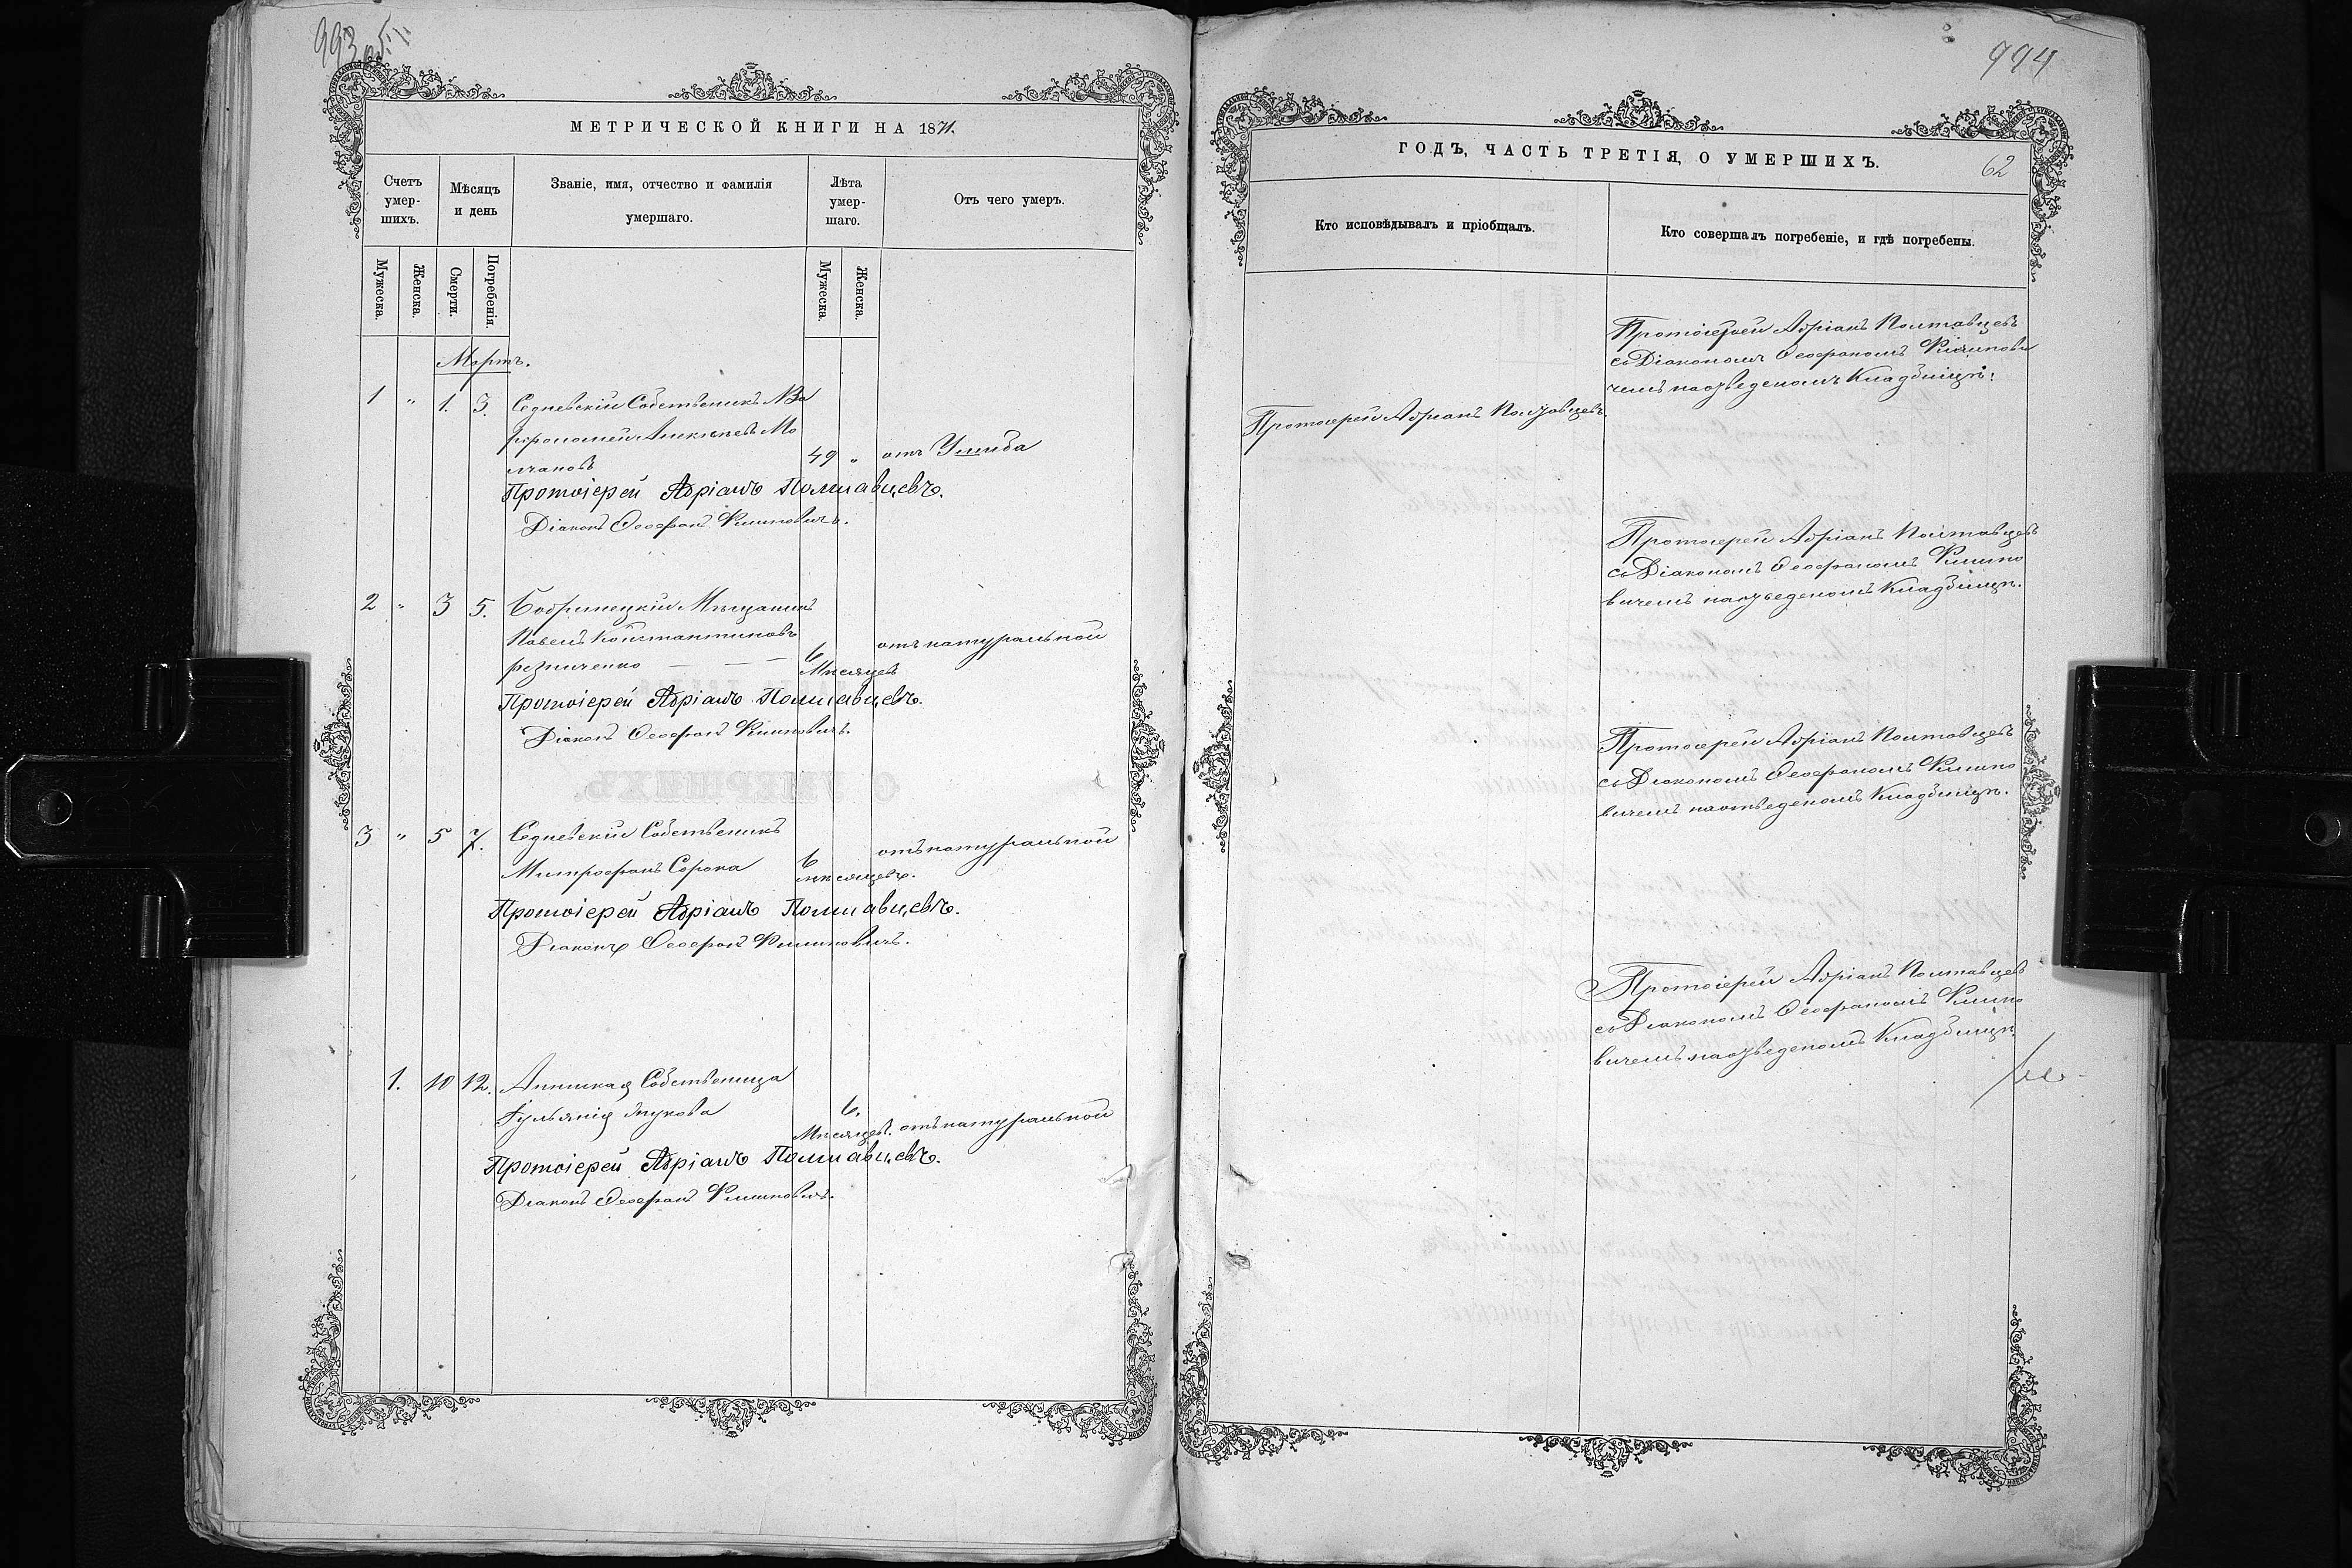 993 об
МЕТРИЧЕСКОЙ КНИГИ НА 1871.
Счетъ умер-шихъ.
Мѣсяцъ и день
Званіе, имя, отчество и фамилія умершаго.
Лѣта умер-шаго.
Отъ чего умеръ.
Мужеска.
Женска.
Смерти.
Погребенія.
Мужеска.
Женска.
Мартъ.
1 " 1. 3. Седневскій Собственикъ Ва
рфоломей Мо
лчановъ 49 " отъ
Протоіерей Адріанъ Полтавцевъ.
Діаконъ Ѳеофанъ Филиповичъ.
2 " 3 5. Бобринецкій Мѣщанинъ
Павелъ Константиновъ
резниченко 6 Мѣсяцевъ отъ натуральной
Протоіерей Адріанъ Полтавцевъ.
Діаконъ Ѳеофанъ Филиповичъ.
3 " 5 7. Седневскій Собственикъ
Митрофанъ Сорока 6 мѣсяцевъ. отъ натуральной
Протоіерей Адріанъ Полтавцевъ.
Діаконъ Ѳеофанъ Филиповичъ.
1. 10 12. Собственица
Іульянія 6. Мѣсяцевъ. отъ натуральной
Протоіерей Адріанъ Полтавцевъ.
Діаконъ Ѳеофанъ Филиповичъ.
994
ГОДЪ, ЧАСТЬ ТРЕТІЯ, О УМЕРШИХЪ.
62
Кто исповѣдывалъ и пріобщалъ.
Кто совершалъ погребеніе, и гдѣ погребены.
Протоіерей Адріанъ Полтавцевъ
съ Діакономъ Ѳеофаномъ Филипови
чемъ на отведеномъ Кладбищѣ.
Протоіерей Адріанъ Полтавцевъ.
Протоіерей Адріанъ Полтавцевъ
съ Діакономъ Ѳеофаномъ Филипо
вичемъ на отведеномъ Кладбищѣ.
Протоіерей Адріанъ Полтавцевъ
съ Діакономъ Ѳеофаномъ Филипо
вичемъ на отведеномъ Кладбищѣ.
Протоіерей Адріанъ Полтавцевъ
съ Діакономъ Ѳеофаномъ Филипо
вичемъ на отведеномъ Кладбищѣ